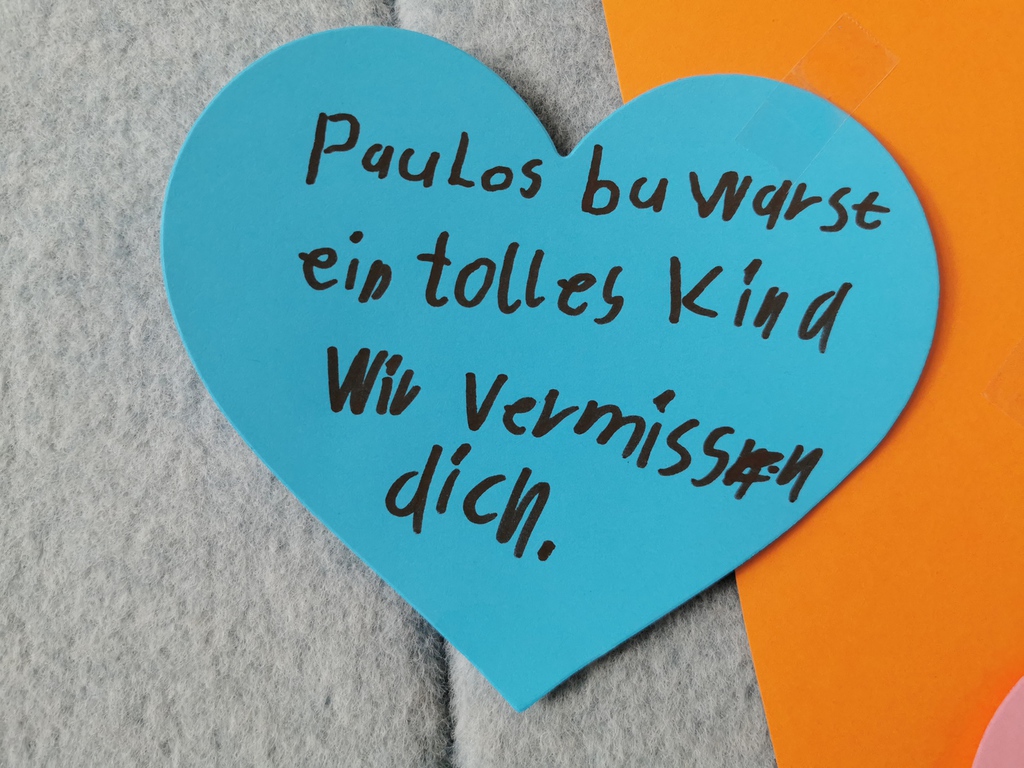 Paulos bu warst
ein tolles Kind
Wir vermissen
dich.